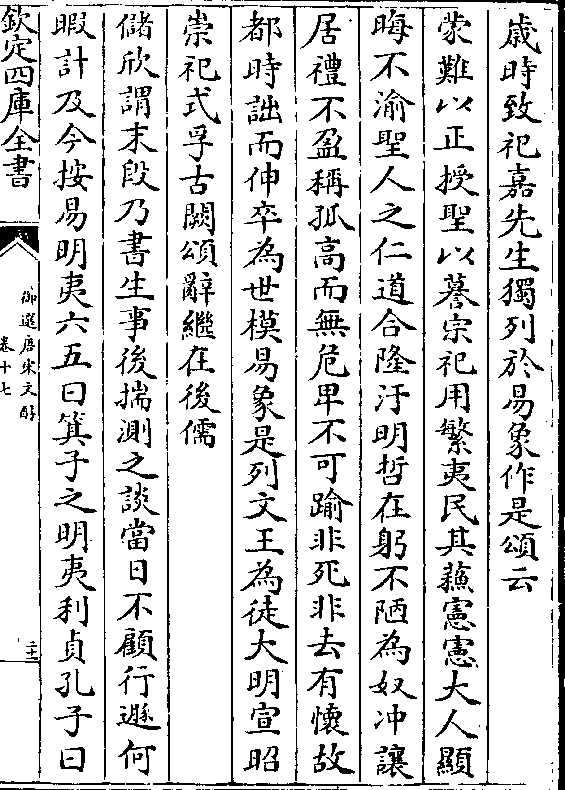 歲時致祀嘉先生獨列於易象作是頌云
蒙難以正授聖以謩宗祀用繁夷民其蘓憲憲大人顯
晦不渝聖人之仁道合隆汙明哲在躬不陋為奴冲讓
居禮不盈稱孤高而無危卑不可踰非死非去有懷故
都時詘而伸卒為世模易象是列文王為徒大明宣昭
崇祀式孚古闕頌辭繼在後儒
儲欣謂末段乃書生事後揣測之談當日不顧行遯何
暇計及今按易明夷六五曰箕子之明夷利貞孔子曰
欽定四庫全書
御選唐宋文醇
卷十七
二十二